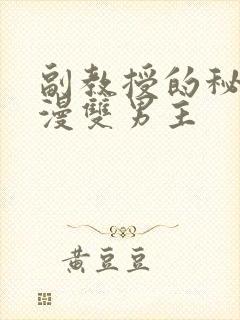 副教授的秘
漫雙男主
黃豆豆